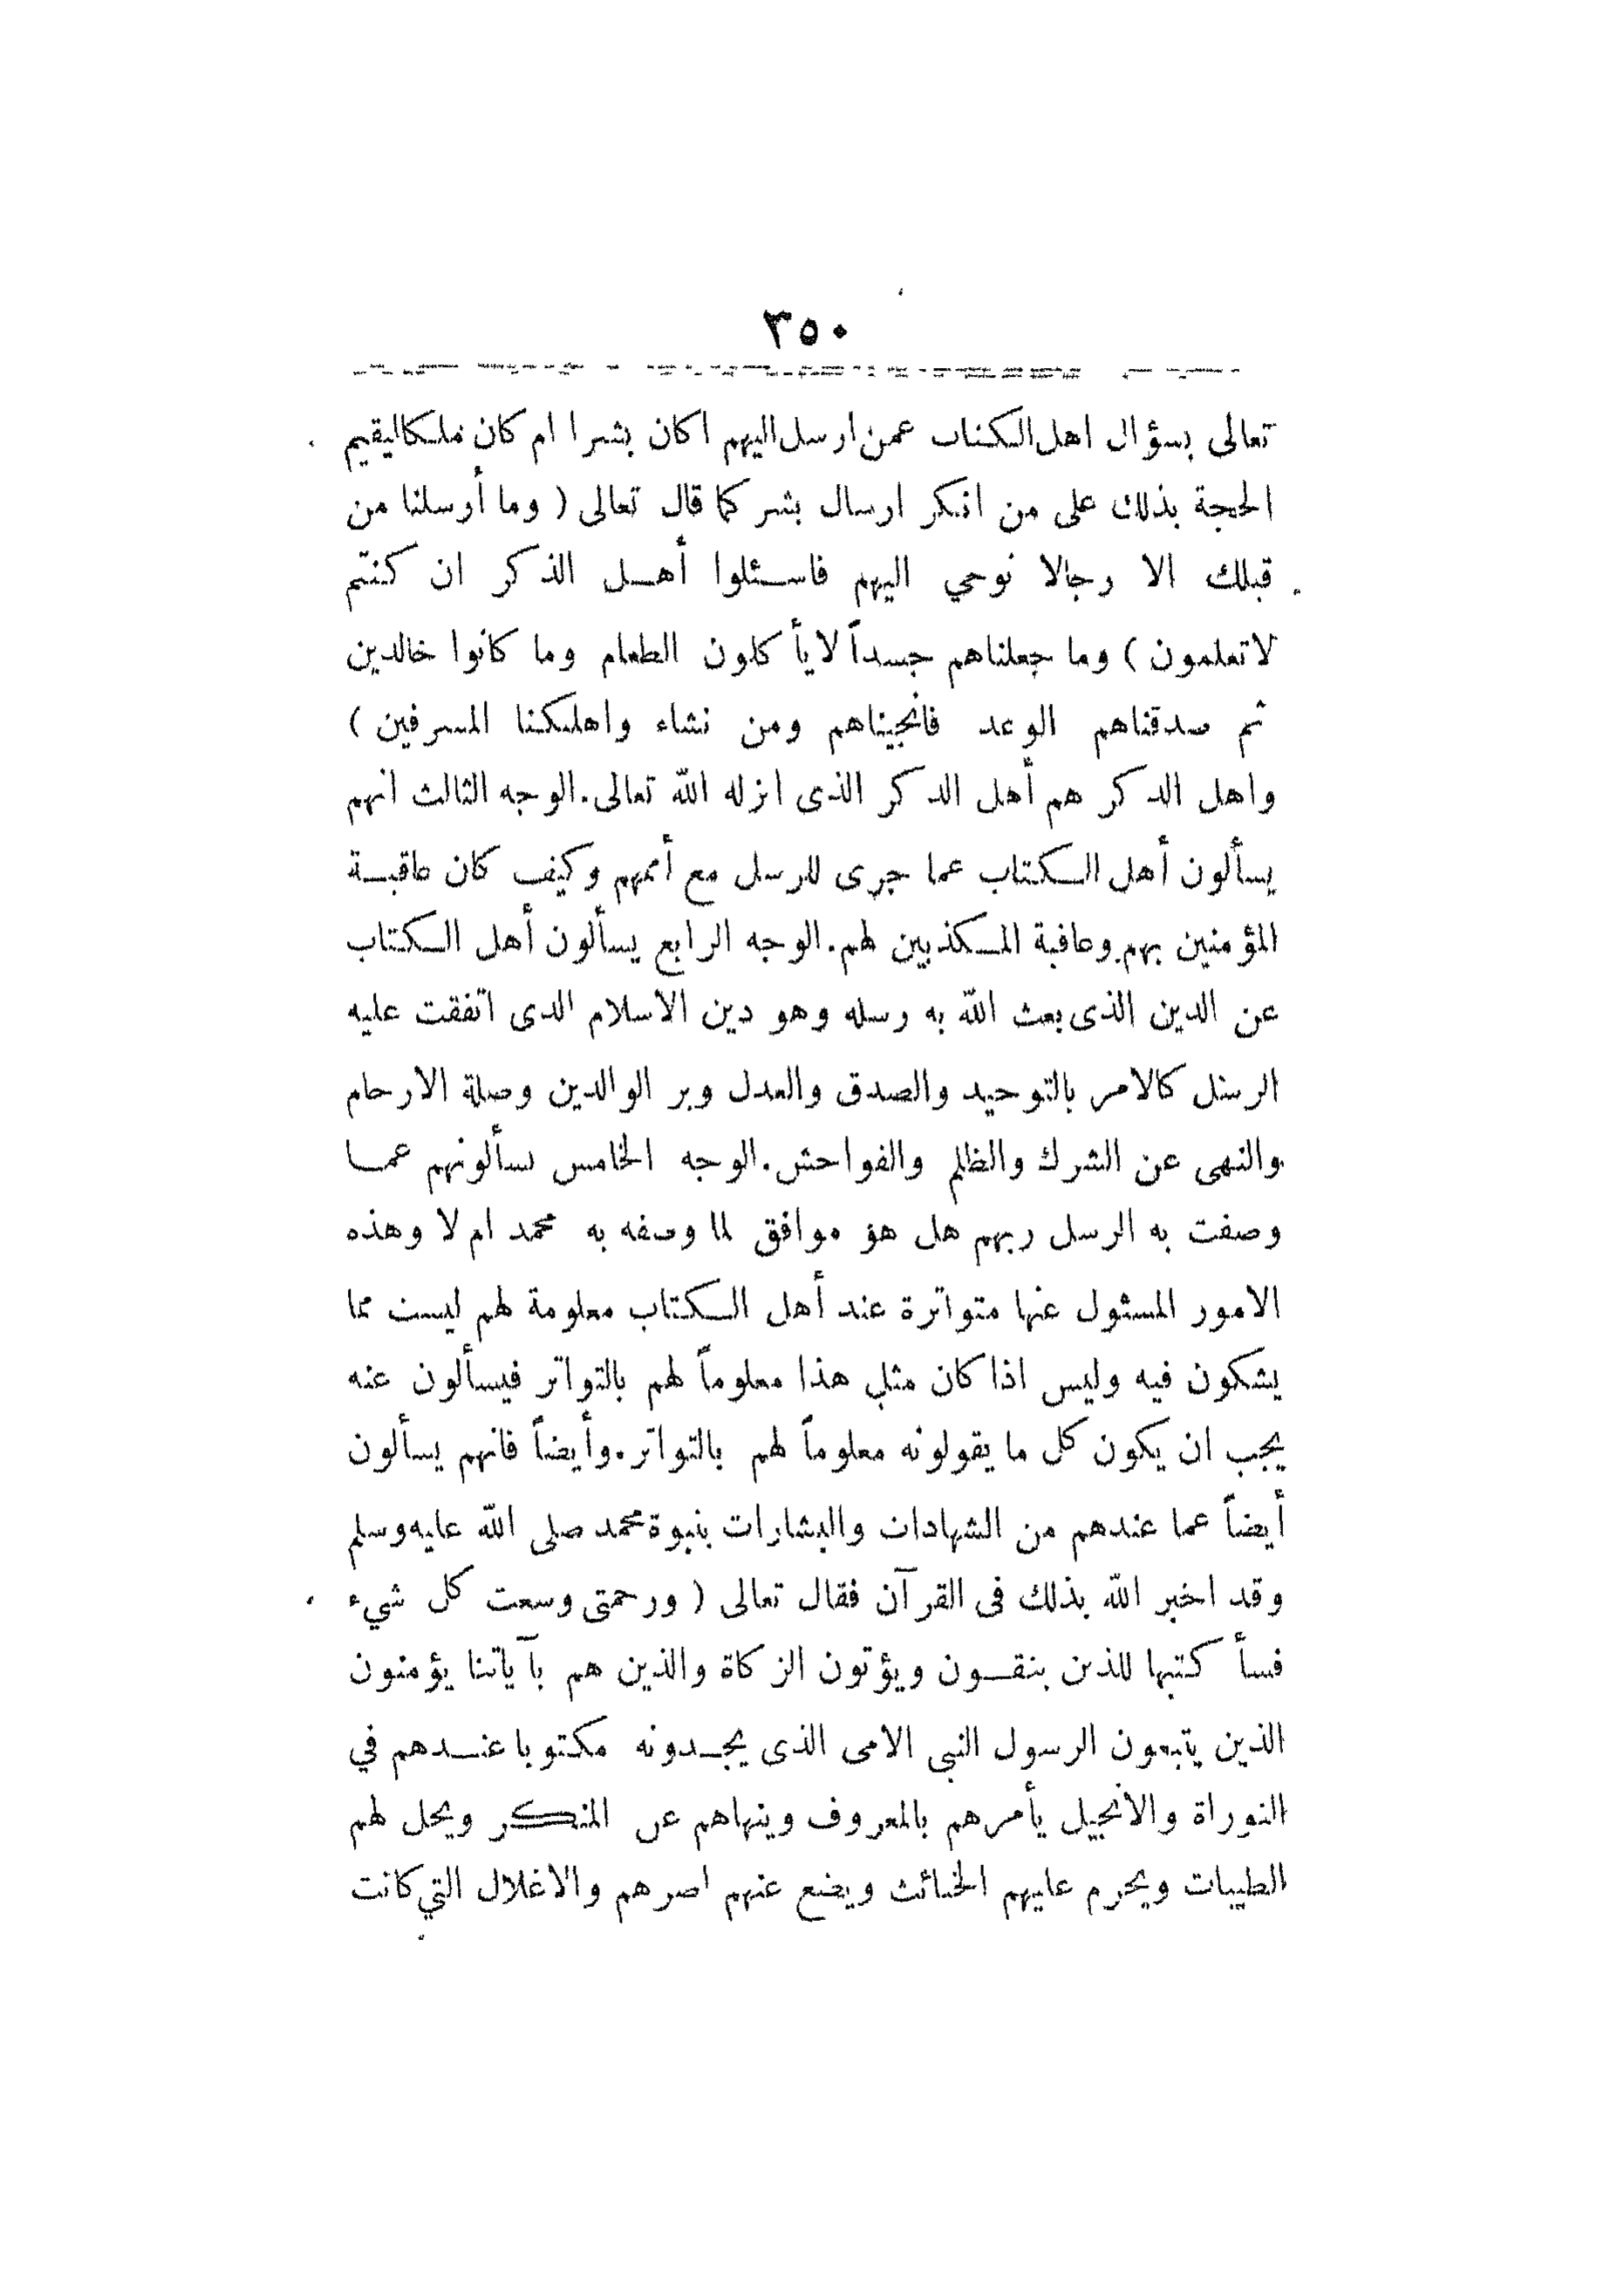 ٣٥٠
تعالى بسؤال اهل الكتاب عمن ارسل اليهم اكان بشرا ام كان ملكا ليقيم
الحجة بذلك على من انكر ارسال بشر كما قال تعالى ( وما أرسلنا من
قبلك الا رجالا نوحي اليهم فاسئلوا أهل الذكر ان كنتم
لا تعلمون ) وما جعلناهم جسداً لا يأكلون الطعام وما كانوا خالدين
ثم صدقناهم الوعد فانجيناهم ومن نشاء واهلكنا المسرفين )
واهل الذكر هم أهل الذكر الذى انزله الله تعالى . الوجه الثالث انهم
يسألون أهل الكتاب عما جرى للرسل مع أممهم وكيف كان عاقبة
المؤمنين بهم وعاقبة المكذبين لهم . الوجه الرابع يسألون أهل الكتاب
عن الدين الذى بعث الله به رسله وهو دين الاسلام الذى اتفقت عليه
الرسل كالامر بالتوحيد والصدق والعدل وبر الوالدين وصلة الارحام
والنهى عن الشرك والظلم والفواحش . الوجه الخامس يسألونهم عما
وصفت به الرسل ربهم هل هو موافق لما وصفه به محمد ام لا وهذه
الامور المسئول عنها متواترة عند أهل الكتاب معلومة لهم ليست مما
يشكون فيه وليس اذا كان مثل هذا معلوماً لهم بالتواتر فيسألون عنه
يجب ان يكون كل ما يقولونه معلوماً لهم بالتواتر . وأيضاً فانهم يسألون
أيضاً عما عندهم من الشهادات والبشارات بنبوة محمد صلى الله عليه وسلم
وقد اخبر الله بذلك فى القرآن فقال تعالى ( ورحمتى وسعت كل شيء
فسأكتبها للذين يتقون ويؤتون الزكاة والذين هم بآياتنا يؤمنون
الذين يتبعون الرسول النبي الامى الذى يجدونه مكتوبا عندهم في
التوراة والانجيل يأمرهم بالمعروف وينهاهم عن المنكر ويحل لهم
الطيبات ويحرم عليهم الخبائث ويضع عنهم اصرهم والاغلال التي كانت